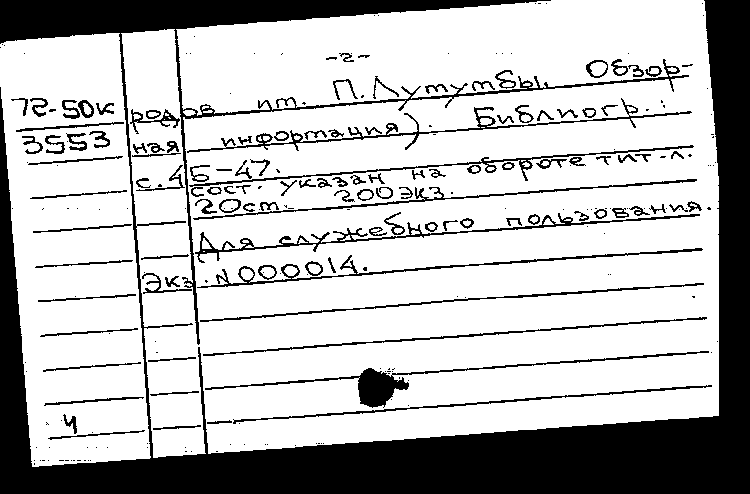 -2-
72-50к родов им. П.Лумумбы. Обзор-
3553 ная информация). Библиогр.:
с. 45-47.
сост. указан на обороте тит.л.
20см. 200экз.
Для служебного пользования.
Экз. N000014.
4